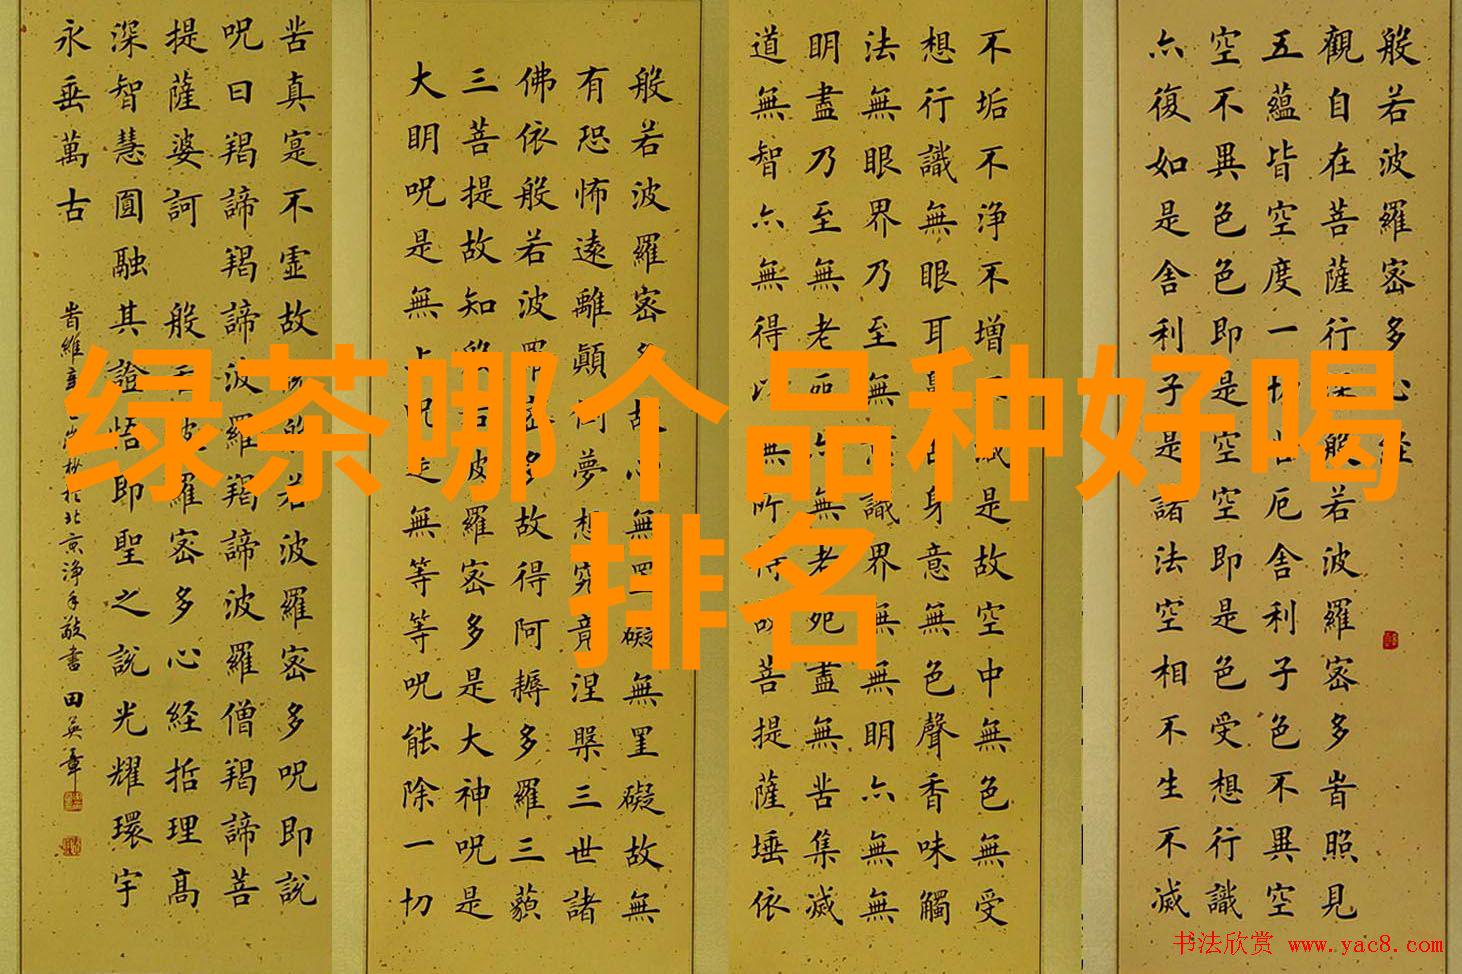 绿茶哪个品种好喝
排名
般若波羅密多心経
觀自在菩薩行深般若波羅密多旹照見
五蘊皆空度一切苦厄舍利子色不異空
空不異色色即是空空即是色受想行識
亦復如是舍利子是諸法空相不生不滅
不垢不浄不增不減是故空中無色無受
想行識無眼耳鼻舌身意無色聲香味觸
法無眼界乃至無意識界無無明亦無無
明盡乃至無老死亦無老死盡無苦集滅
道無智亦無得以無所得故菩提薩埵依
般若波羅密多故心無罣礙無罣礙故無
有恐怖遠離顛倒夢想究竟涅槃三世諸
佛依般若波羅密多故得阿耨多羅三藐
三菩提故知般若波羅密多是大神呪是
大明呪是無上呪是無等等呪能除一切
苦真寔不虛故說般若波羅密多呪即說
呪曰羯諦羯諦波羅羯諦波羅僧羯諦菩
提薩婆訶 般若波羅密多心経括理高
深智慧圓融其證悟即聖之說光耀環宇
永垂萬古
旹維 北京浄手敬書 田英章
书法欣赏 www.yac8.com